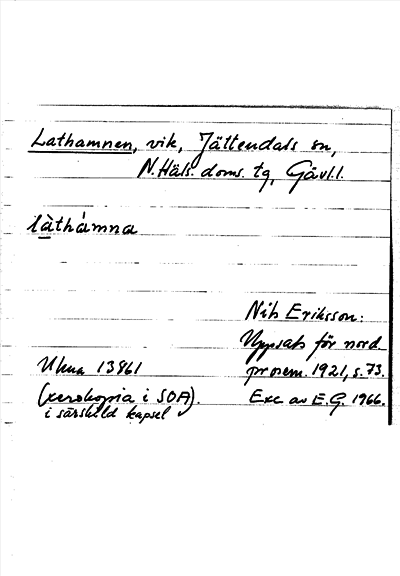 Lathamnen, vik, Jättendals sn,
N. Häls. doms. tg, Gävl.l.
làthámna
Nils Eriksson:
Uppsats för nord.
prosem. 1921, s. 73.
Exc av E.G. 1966.
Ukua 13861
(xerokopia i SOA).
i särskild kapsel